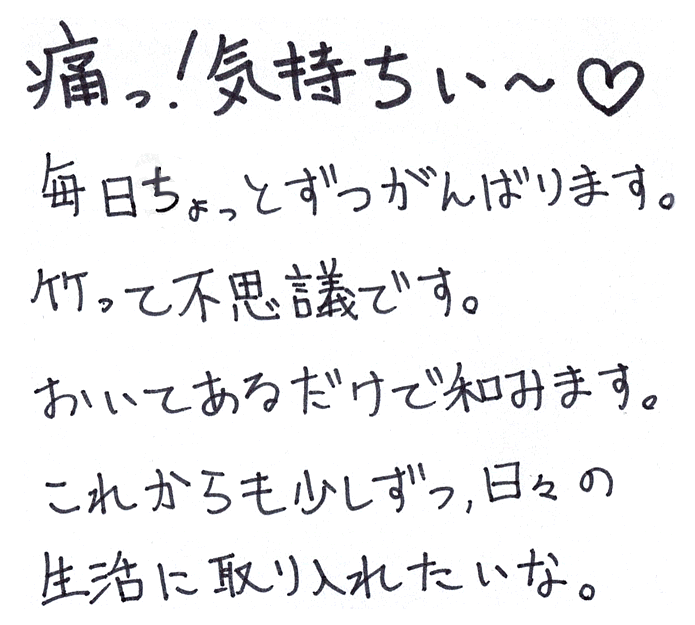 痛っ!気持ちぃ〜♡
毎日ちょっとずつがんばります。
竹って不思議です。
おいてあるだけで和みます。
これからも少しずつ,日々の
生活に取り入れたいな。